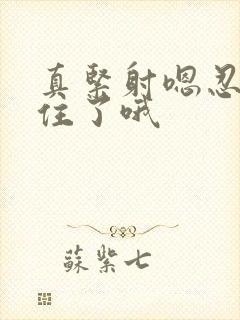 真紧射嗯忍
住了哦
蘇紫七